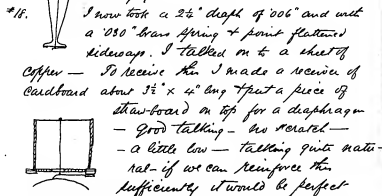 #18.
I now took a 2½" diaph of '006" and with
a '030" brass spring & point flattened
sideways. I talked on to a sheet of
copper — To receive this I made a receiver of
cardboard about 3½" x 4" long & put a piece of
straw-board on top for a diaphragm
— good talking — no scratch —
— a little low — talking quite natu-
ral — if we can reinforce this
sufficiently it would be perfect